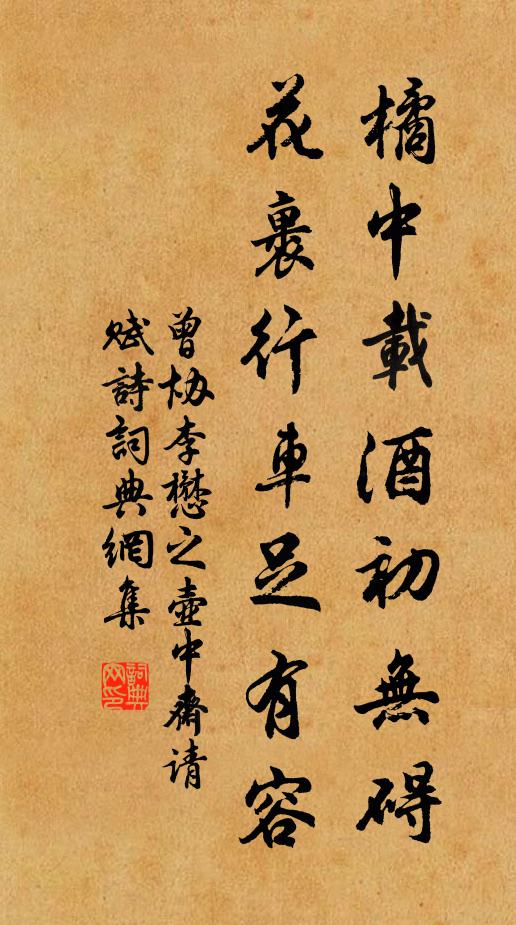 橘中載酒初無碍
花裏行車足有容
曾協李懋之壺中齋请
賦詩詞典網集
詞典网印